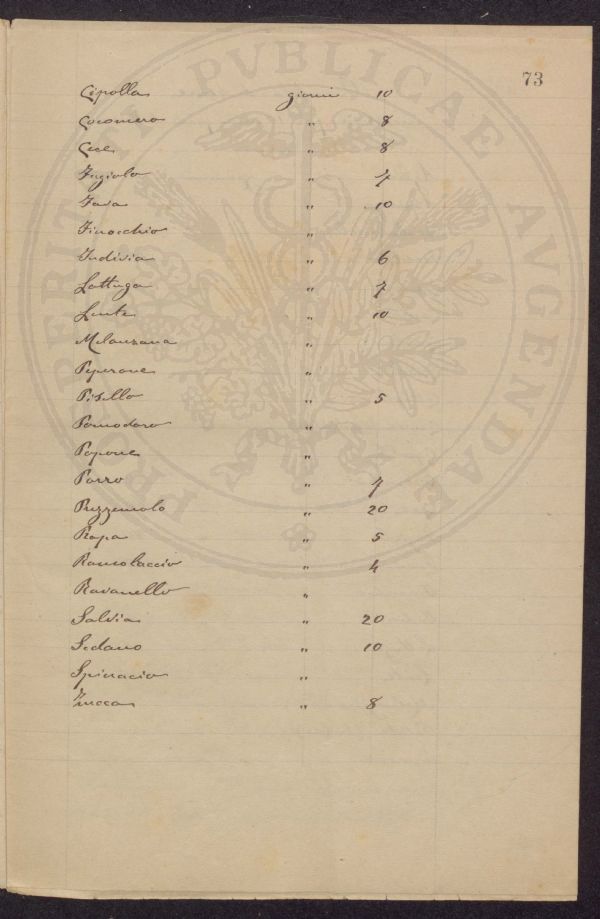 73
Cipolla giorni 10
Cocomero " 8
Cece " 8
Fagiolo " 7
Fava " 10
Finocchio "
Indivia " 6
Lattuga " 7
Lente " 10
Melanzana "
Peperone "
Pisello " 5
Pomodoro "
Popone "
Porro " 7
Prezzemolo " 20
Rapa " 5
Ramolaccio " 4
Ravanello "
Salvia " 20
Sedano " 10
Spinacio "
Zucca " 8
PROSPERITATI PVBLICAE AVGENDAE